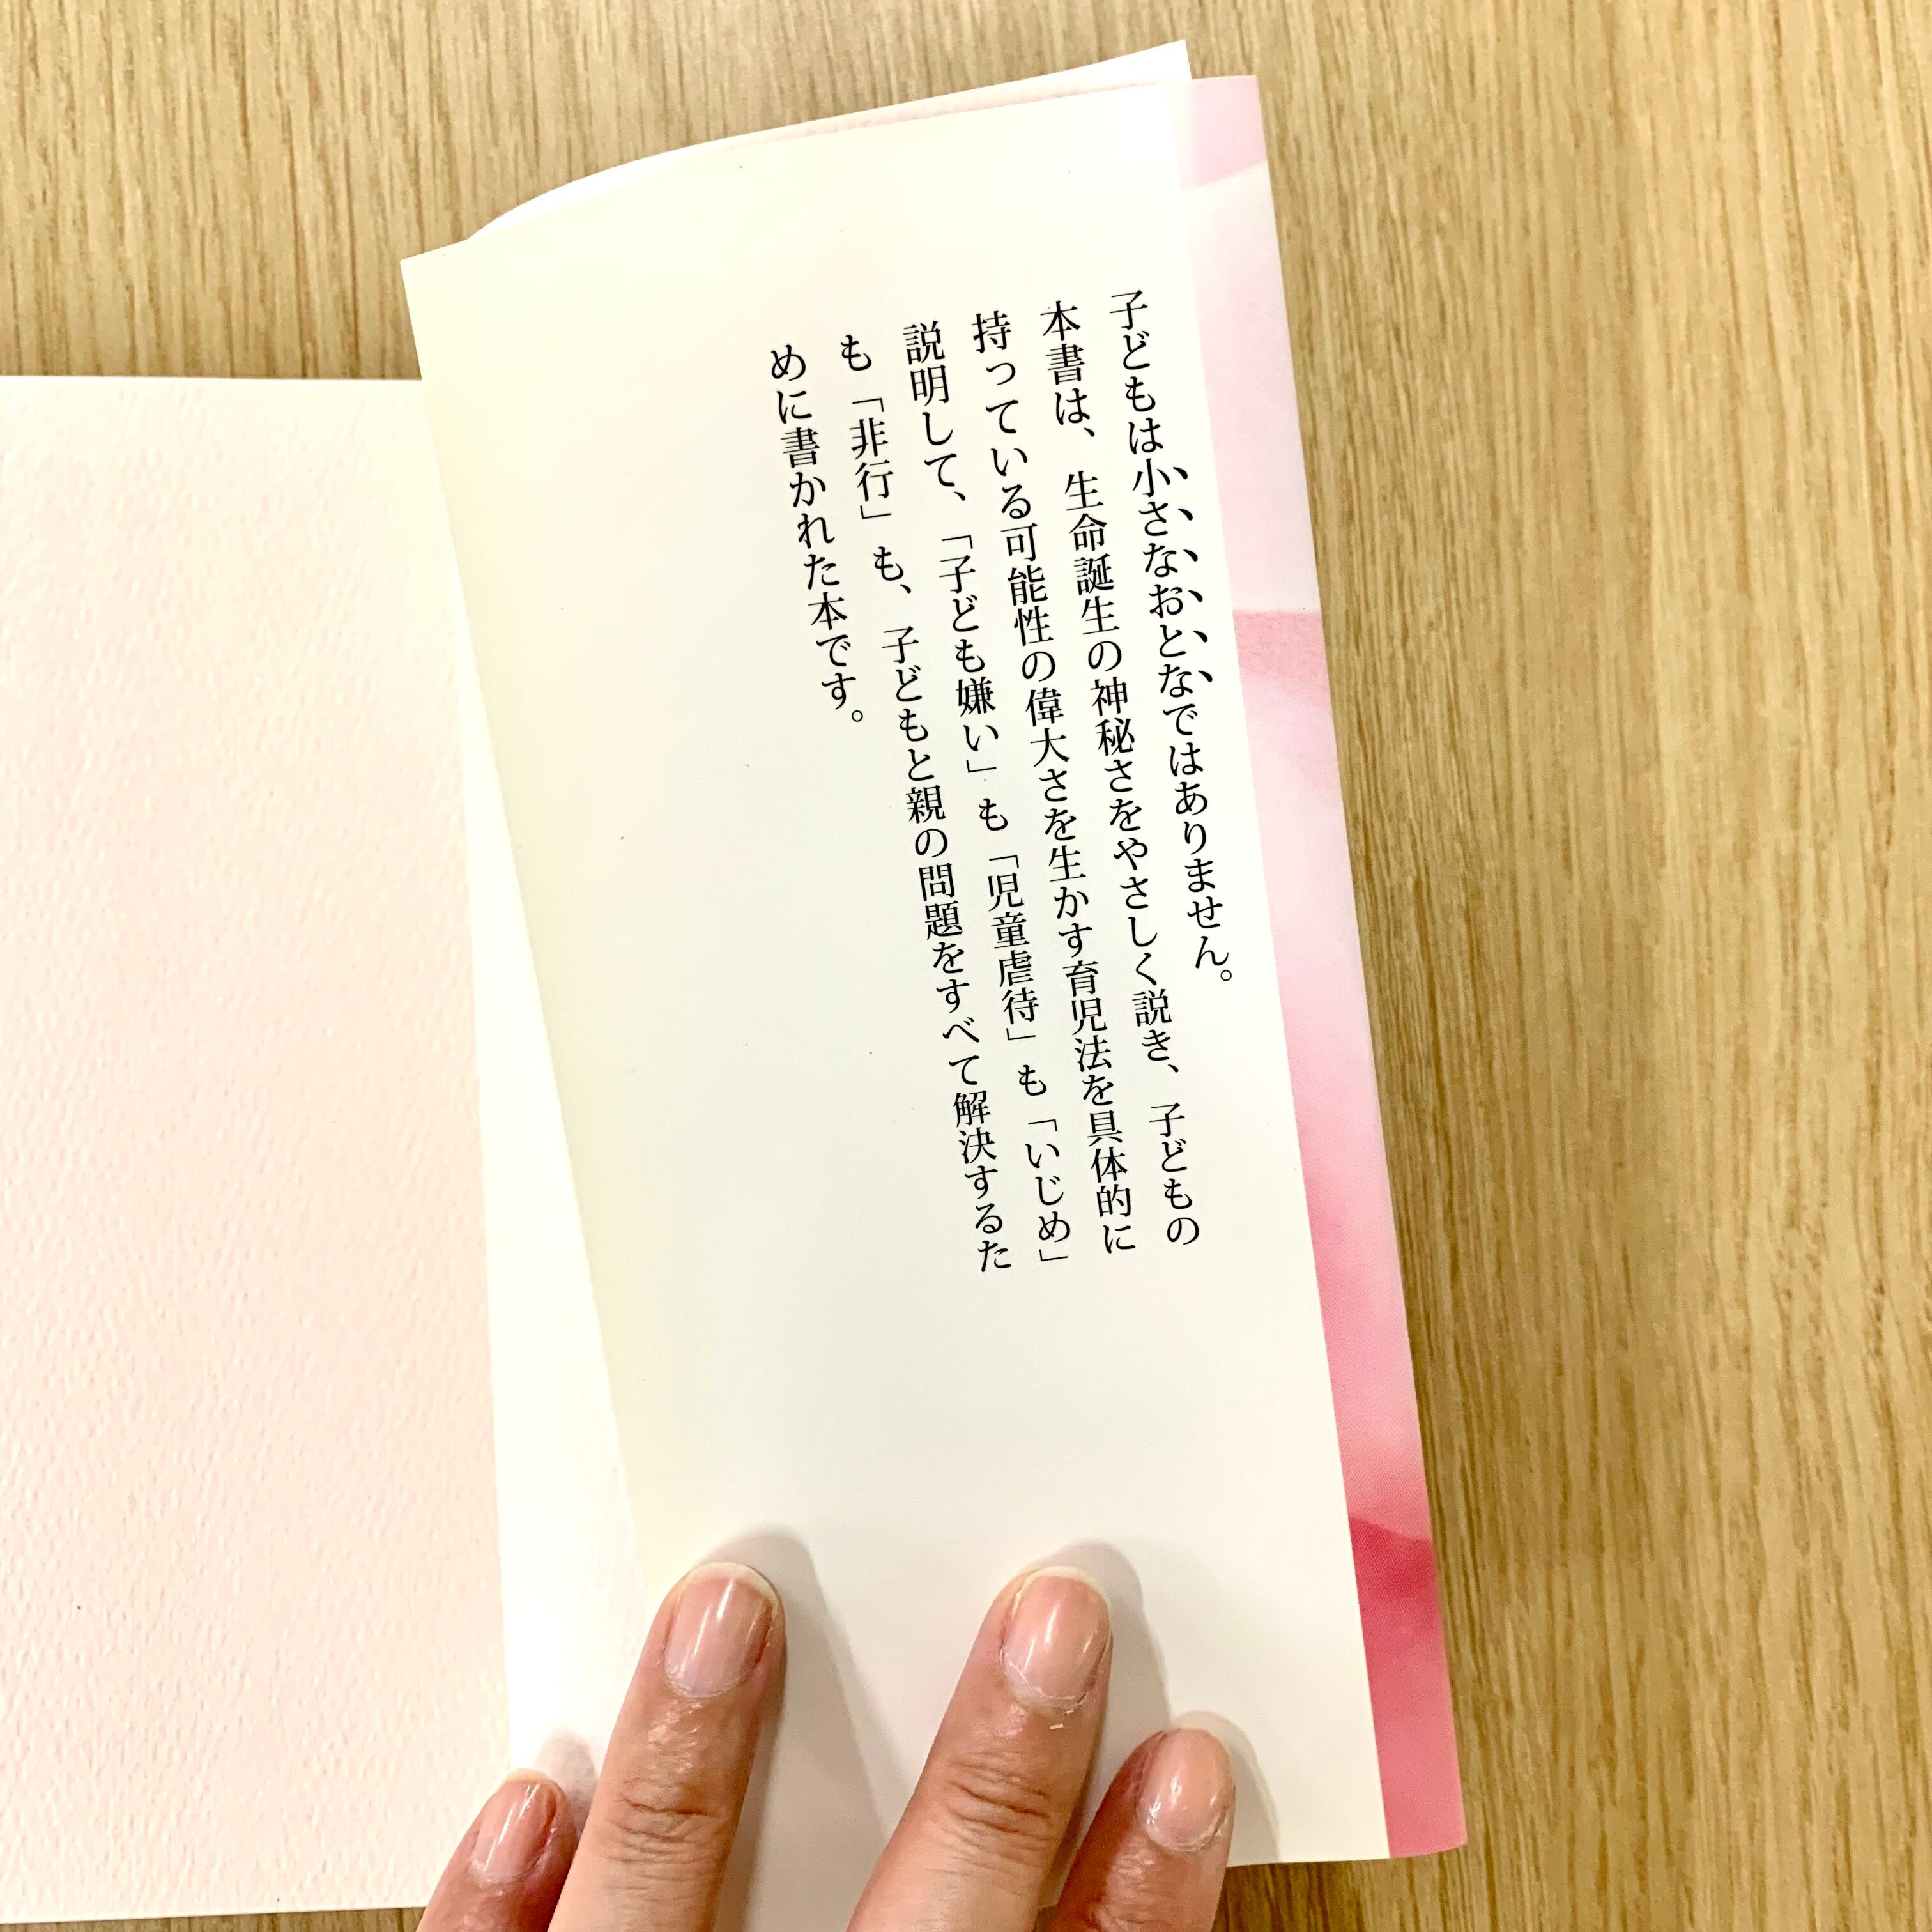 子どもは小さなおとなではありません。
本書は、生命誕生の神秘さをやさしく説き、子どもの
持っている可能性の偉大さを生かす育児法を具体的に
説明して、「子ども嫌い」も「児童虐待」も「いじめ」
も「非行」も、子どもと親の問題をすべて解決するた
めに書かれた本です。